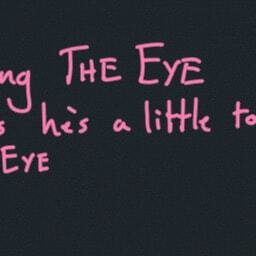 ng THE EYE
s he's a little to
EYE